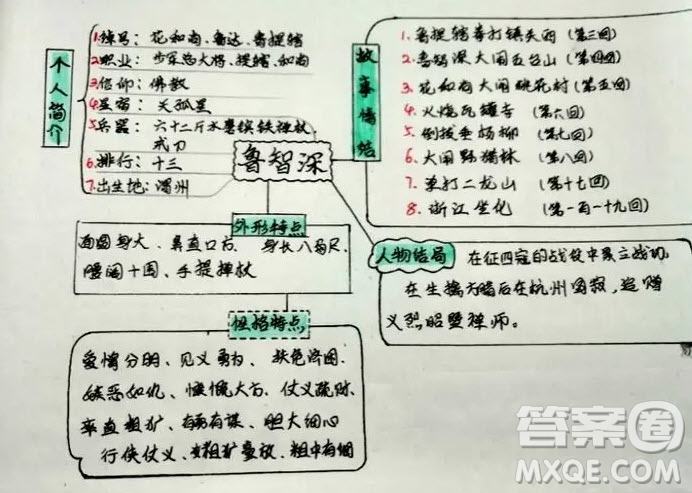 个人简介
1.绰号：花和尚、鲁达、鲁提辖
2.职业：步军总大将、提辖、和尚
3.信仰：佛教
4.星宿：天孤星
5.兵器：六十二斤水磨镔铁禅杖
戒刀
6.排行：十三
7.出生地：渭州
故事情结
1.鲁提辖拳打镇关西（第三回）
2.鲁智深大闹五台山（第四回）
3.花和尚大闹桃花村（第五回）
4.火烧瓦罐寺（第六回）
5.倒拔垂杨柳（第七回）
6.大闹野猪林（第八回）
7.单打二龙山（第十七回）
8.浙江坐化（第一百一十九回）
鲁智深
外形特点
面圆身大、鼻直口方、身长八尺
腰阔十围、手提禅杖
人物结局
在征四寇的战役中累立战功
在生擒方腊后在杭州圆寂，追赠
义烈昭暨禅师。
性格特点
爱憎分明、见义勇为、扶危济困、
嫉恶如仇、慷慨大方、仗义疏财、
率直粗犷、有勇有谋、胆大细心
行侠仗义、粗犷豪放、粗中有细
答案圈
MXQE.COM